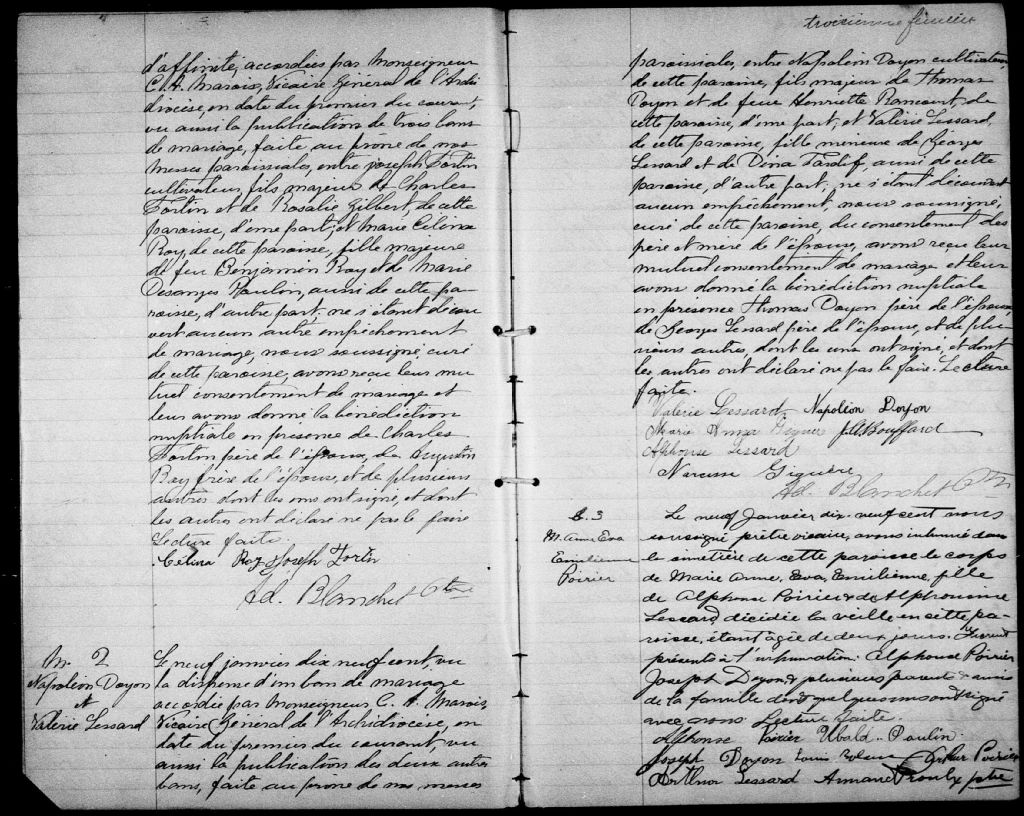 d'affinité, accordées par Monseigneur
C. A. Marois, Vicaire Général de l'Archi
diocèse, en date du premier du courant,
vu aussi la publication de trois bans
de mariage, faite au prône de nos
messes paroissiales, entre Joseph Fortin
cultivateur, fils majeur de Charles
Fortin et de Rosalie Gilbert, de cette
paroisse, d'une part; et Marie Célina
Roy, de cette paroisse, fille majeure
de feu Benjamin Roy et de Marie
Desanges Poulin, aussi de cette pa-
roisse, d'autre part; ne s'étant décou
vert aucun autre empêchement
de mariage, nous soussigné, curé
de cette paroisse, avons reçu leur mu
tuel consentement de mariage et
leur avons donné la bénédiction
nuptiale en présence de Charles
Fortin père de l'époux, de Augustin
Roy frère de l'épouse, et de plusieurs
autres dont les uns ont signé, et dont
les autres ont déclaré ne pas le faire
Lecture faite.
Célina Roy Joseph Fortin
Ad. Blanchet Ptre
M. 2
Napoléon Doyon
et
Valérie Lessard
Le neuf janvier dix neuf cent, vu
la dispense d'un ban de mariage
accordée par Monseigneur C. A. Marois,
Vicaire Général de l'Archidiocèse, en
date du premier du courant, vu
aussi la publication des deux autres
bans, faite au prône de nos messes
troisième feuillet
paroissiales, entre Napoléon Doyon cultivateur,
de cette paroisse, fils majeur de Thomas
Doyon et de feue Henriette Rancourt, de
cette paroisse, d'une part; et Valérie Lessard,
de cette paroisse, fille mineure de Georges
Lessard et de Dina Tardif, aussi de cette
paroisse, d'autre part; ne s'étant découvert
aucun empêchement, nous soussigné,
curé de cette paroisse, du consentement des
père et mère de l'épouse, avons reçu leur
mutuel consentement de mariage et leur
avons donné la bénédiction nuptiale
en présence Thomas Doyon père de l'époux,
de Georges Lessard père de l'épouse, et de plu-
sieurs autres, dont les uns ont signé, et dont
les autres ont déclaré ne pas le faire. Lecture
faite.
Valérie Lessard Napoléon Doyon
Marie Anna J.A. Bouffard
Alphonse Lessard
Narcisse Giguère
Ad. Blanchet Ptre
S. 3
M. Anne Eva
Emilienne
Poirier
Le neuf Janvier dix-neuf cent nous
soussigné prêtre vicaire, avons inhumé dans
le cimetière de cette paroisse le corps
de Marie Anne, Eva, Emilienne, fille
de Alphonse Poirier & de Alphonsine
Lessard décédée la veille en cette pa-
roisse, étant âgée de deux jours. Furent
présents à l'inhumation: Alphonse Poirier
Joseph Doyon & plusieurs parents & amis
de la famille dont quelques uns ont signé
avec nous Lecture faite.
Alphonse Poirier Ubald Poulin
Joseph Doyon Louis Arthur Poirier
Arthur Lessard Armand Proulx ptre